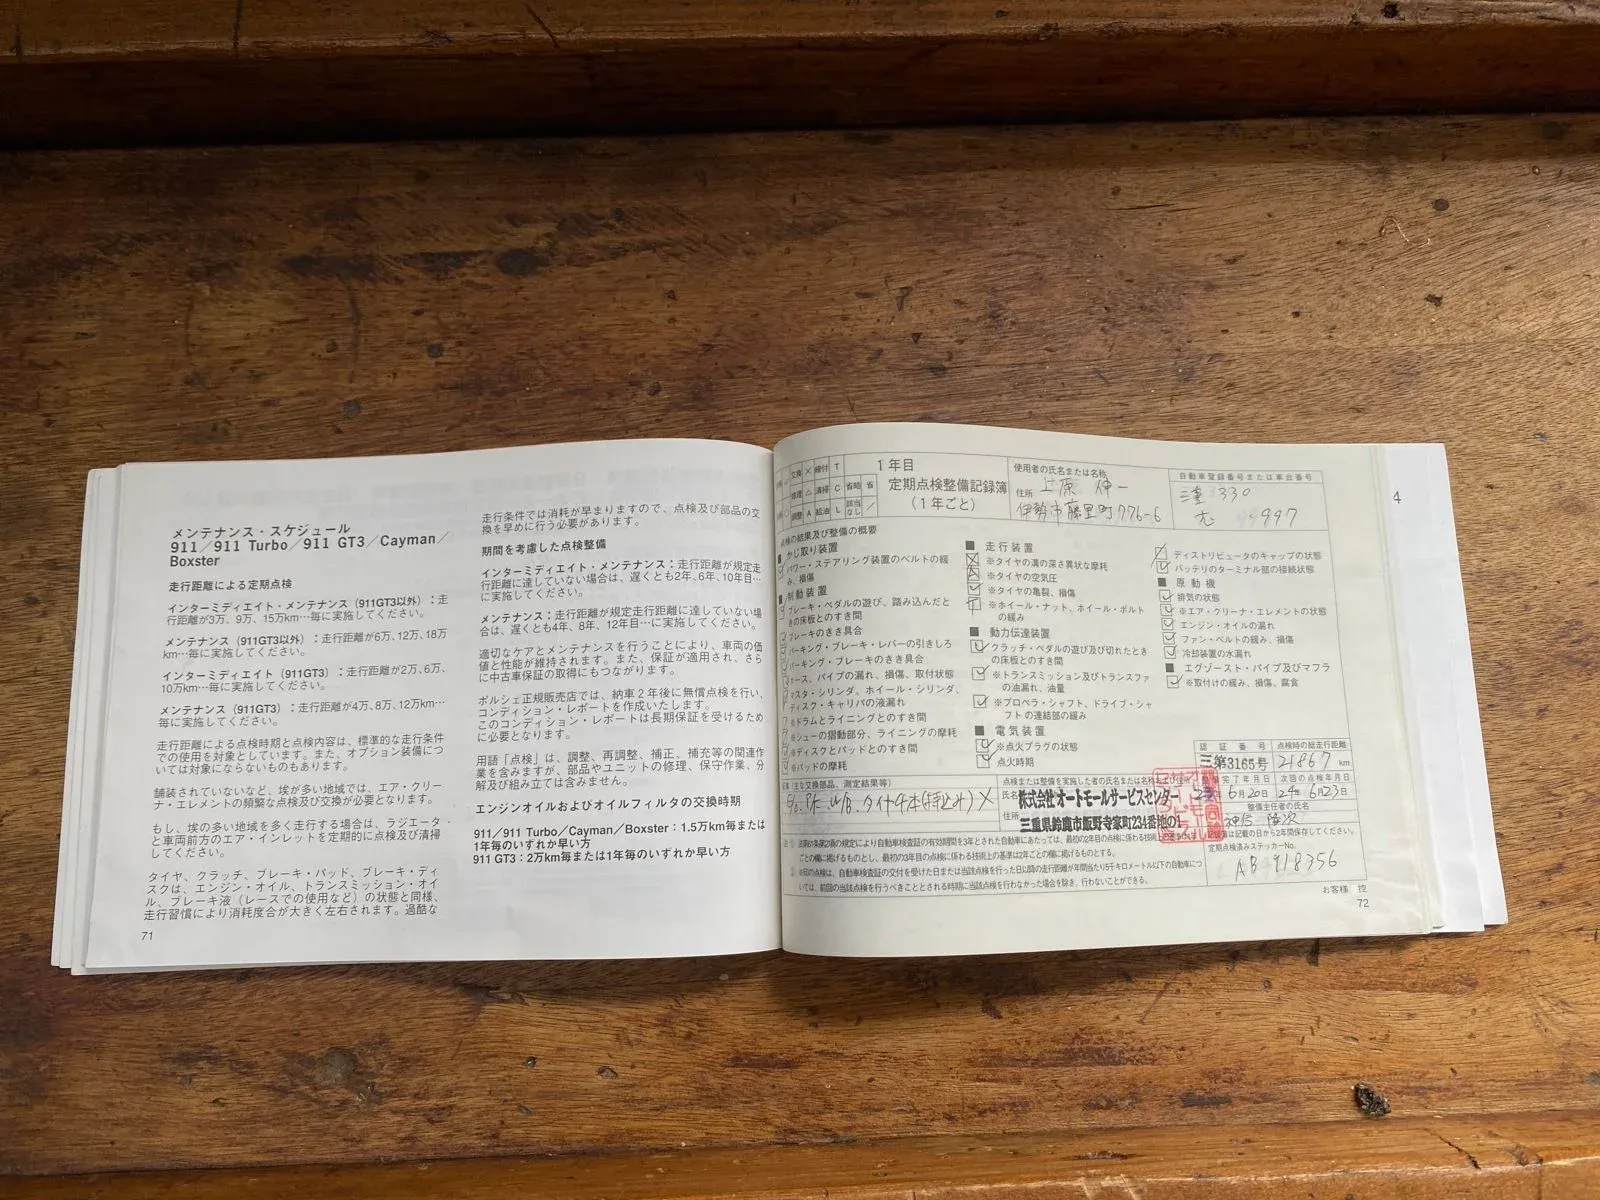 メンテナンス・スケジュール
911／911 Turbo／911 GT3／Cayman／
Boxster
走行距離による定期点検
インターミディエイト・メンテナンス（911GT3以外）：走
行距離が3万、9万、15万km…毎に実施してください。
メンテナンス（911GT3以外）：走行距離が6万、12万、18万
km…毎に実施してください。
インターミディエイト（911GT3）：走行距離が2万、6万、
10万km…毎に実施してください。
メンテナンス（911GT3）：走行距離が4万、8万、12万km…
毎に実施してください。
走行距離による点検時期と点検内容は、標準的な走行条件
での使用を対象としています。また、オプション装備につ
いては対象にならないものもあります。
舗装されていないなど、埃が多い地域では、エア・クリー
ナ・エレメントの頻繁な点検及び交換が必要となります。
もし、埃の多い地域を多く走行する場合は、ラジエータ・
と車両前方のエア・インレットを定期的に点検及び清掃
してください。
タイヤ、クラッチ、ブレーキ・パッド、ブレーキ・ディ
スクは、エンジン・オイル、トランスミッション・オイ
ル、ブレーキ液（レースでの使用など）の状態と同様、
走行習慣により消耗度合が大きく左右されます。過酷な
71
走行条件では消耗が早まりますので、点検及び部品の交
換を早めに行う必要があります。
期間を考慮した点検整備
インターミディエイト・メンテナンス：走行距離が規定走
行距離に達していない場合は、遅くとも2年、6年、10年目…
に実施してください。
メンテナンス：走行距離が規定走行距離に達していない場
合は、遅くとも4年、8年、12年目…に実施してください。
適切なケアとメンテナンスを行うことにより、車両の価
値と性能が維持されます。また、保証が適用され、さら
に中古車保証の取得にもつながります。
ポルシェ正規販売店では、納車２年後に無償点検を行い、
コンディション・レポートを作成いたします。
このコンディション・レポートは長期保証を受けるため
に必要となります。
用語「点検」は、調整、再調整、補正、補充等の関連作
業を含みますが、部品やユニットの修理、保守作業、分
解及び組み立ては含みません。
エンジンオイルおよびオイルフィルタの交換時期
911／911 Turbo／Cayman／Boxster：1.5万km毎または
1年毎のいずれか早い方
911 GT3：2万km毎または1年毎のいずれか早い方
交換 × 締付 T
修理 △ 清掃 C 省略 省
調整 A 給油 L 該当なし ／
1年目
定期点検整備記録簿
（1年ごと）
使用者の氏名または名称
上原 伸一
住所
伊勢市藤里町776-6
自動車登録番号または車台番号
三重330
997
4
点検の結果及び整備の概要
■ かじ取り装置
パワー・ステアリング装置のベルトの緩
み、損傷
■ 制動装置
ブレーキ・ペダルの遊び、踏み込んだと
きの床板とのすき間
ブレーキのきき具合
パーキング・ブレーキ・レバーの引きしろ
パーキング・ブレーキのきき具合
ホース、パイプの漏れ、損傷、取付状態
マスタ・シリンダ、ホイール・シリンダ、
ディスク・キャリパの液漏れ
※ドラムとライニングとのすき間
※シューの摺動部分、ライニングの摩耗
※ディスクとパッドとのすき間
※パッドの摩耗
■ 走行装置
※タイヤの溝の深さ異状な摩耗
※タイヤの空気圧
※タイヤの亀裂、損傷
※ホイール・ナット、ホイール・ボルト
の緩み
■ 動力伝達装置
クラッチ・ペダルの遊び及び切れたとき
の床板とのすき間
※トランスミッション及びトランスファ
の油漏れ、油量
※プロペラ・シャフト、ドライブ・シャ
フトの連結部の緩み
■ 電気装置
※点火プラグの状態
点火時期
ディストリビュータのキャップの状態
バッテリのターミナル部の接続状態
■ 原動機
排気の状態
※エア・クリーナ・エレメントの状態
エンジン・オイルの漏れ
ファン・ベルトの緩み、損傷
冷却装置の水漏れ
■ エグゾースト・パイプ及びマフラ
※取付けの緩み、損傷、腐食
認証番号
三第3165号
点検時の総走行距離
21867 km
（主な交換部品、測定結果等）
W/B. タイヤ4本(持込み)×
点検または整備を実施した者の氏名または名称および住所
氏名
株式会社オートモールサービスセンター
住所
三重県鈴鹿市飯野寺家町234番地の1
整備完了年月日
6月20日
次回の点検年月日
24年 6月23日
整備主任者の氏名
記録簿は記載の日から2年間保存してください。
定期点検済みステッカーNo.
AB 918356
お客様 控
72